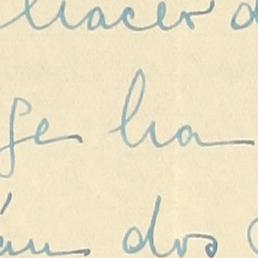 hacer d
ge ha
án dos